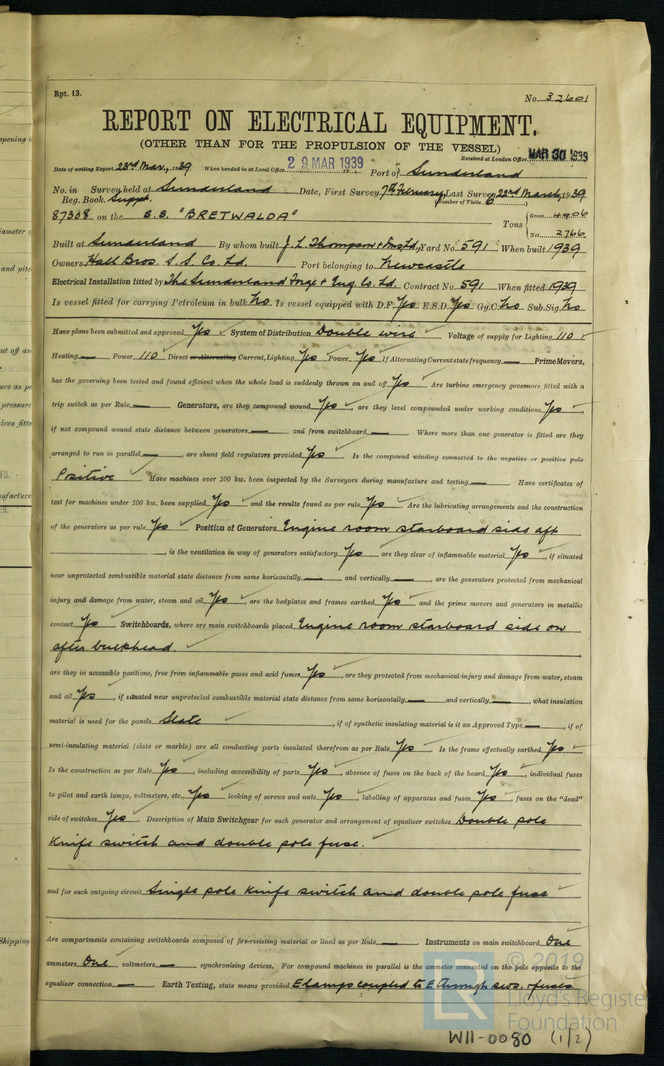 Rpt. 13.
No. 32601
REPORT ON ELECTRICAL EQUIPMENT.
(OTHER THAN FOR THE PROPULSION OF THE VESSEL)
Received at London Office MAR 30 1939
Date of writing Report 23rd Mar., 1939 When handed in at Local Office 29 MAR 1939 Port of Sunderland
No. in Survey held at Sunderland Date, First Survey 7th February Last Survey 22nd March, 1939
Reg. Book. Suppt. Number of Visits. 6
87308 on the S.S. "BRETWALDA" Tons { Gross 4906
Net 2766
Built at Sunderland By whom built J. L. Thompson & Sons Ltd., Yard No. 591 When built 1939
Owners Hall Bros. S. S. Co. Ltd. Port belonging to Newcastle
Electrical Installation fitted by The Sunderland Forge & Eng. Co. Ltd. Contract No. 591 When fitted 1939
Is vessel fitted for carrying Petroleum in bulk No Is vessel equipped with D.F. Yes E.S.D. Yes Gy.C. No Sub.Sig. No
Have plans been submitted and approved Yes System of Distribution Double wire Voltage of supply for Lighting 110
Heating — Power 110 Direct or Alternating Current, Lighting Yes Power Yes If Alternating Current state frequency — Prime Movers,
has the governing been tested and found efficient when the whole load is suddenly thrown on and off Yes Are turbine emergency governors fitted with a
trip switch as per Rule — Generators, are they compound wound Yes, are they level compounded under working conditions Yes,
if not compound wound state distance between generators — and from switchboard — Where more than one generator is fitted are they
arranged to run in parallel —, are shunt field regulators provided Yes Is the compound winding connected to the negative or positive pole
Positive Have machines over 100 kw. been inspected by the Surveyors during manufacture and testing — Have certificates of
test for machines under 100 kw. been supplied Yes and the results found as per rule Yes Are the lubricating arrangements and the construction
of the generators as per rule Yes Position of Generators Engine room starboard side aft
, is the ventilation in way of generators satisfactory Yes are they clear of inflammable material Yes, if situated
near unprotected combustible material state distance from same horizontally — and vertically —, are the generators protected from mechanical
injury and damage from water, steam and oil Yes, are the bedplates and frames earthed Yes and the prime movers and generators in metallic
contact Yes Switchboards, where are main switchboards placed Engine room starboard side on
after bulkhead.
are they in accessible positions, free from inflammable gases and acid fumes Yes, are they protected from mechanical injury and damage from water, steam
and oil Yes, if situated near unprotected combustible material state distance from same horizontally — and vertically —, what insulation
material is used for the panels Slate, if of synthetic insulating material is it an Approved Type —, if of
semi-insulating material (slate or marble) are all conducting parts insulated therefrom as per Rule Yes Is the frame effectually earthed Yes
Is the construction as per Rule Yes, including accessibility of parts Yes, absence of fuses on the back of the board Yes, individual fuses
to pilot and earth lamps, voltmeters, etc. Yes locking of screws and nuts Yes, labelling of apparatus and fuses Yes, fuses on the "dead"
side of switches Yes Description of Main Switchgear for each generator and arrangement of equaliser switches Double pole
Knife switch and double pole fuse.
and for each outgoing circuit Single pole knife switch and double pole fuse
Are compartments containing switchboards composed of fire-resisting material or lined as per Rule — Instruments on main switchboard One
ammeters One voltmeters — synchronizing devices. For compound machines in parallel is the ammeter connected on the pole opposite to the
equaliser connection — Earth Testing, state means provided E lamps coupled to E through sws. & fuses
© 2019
LR
Lloyd's Register
Foundation
W11-0080 (1/2)